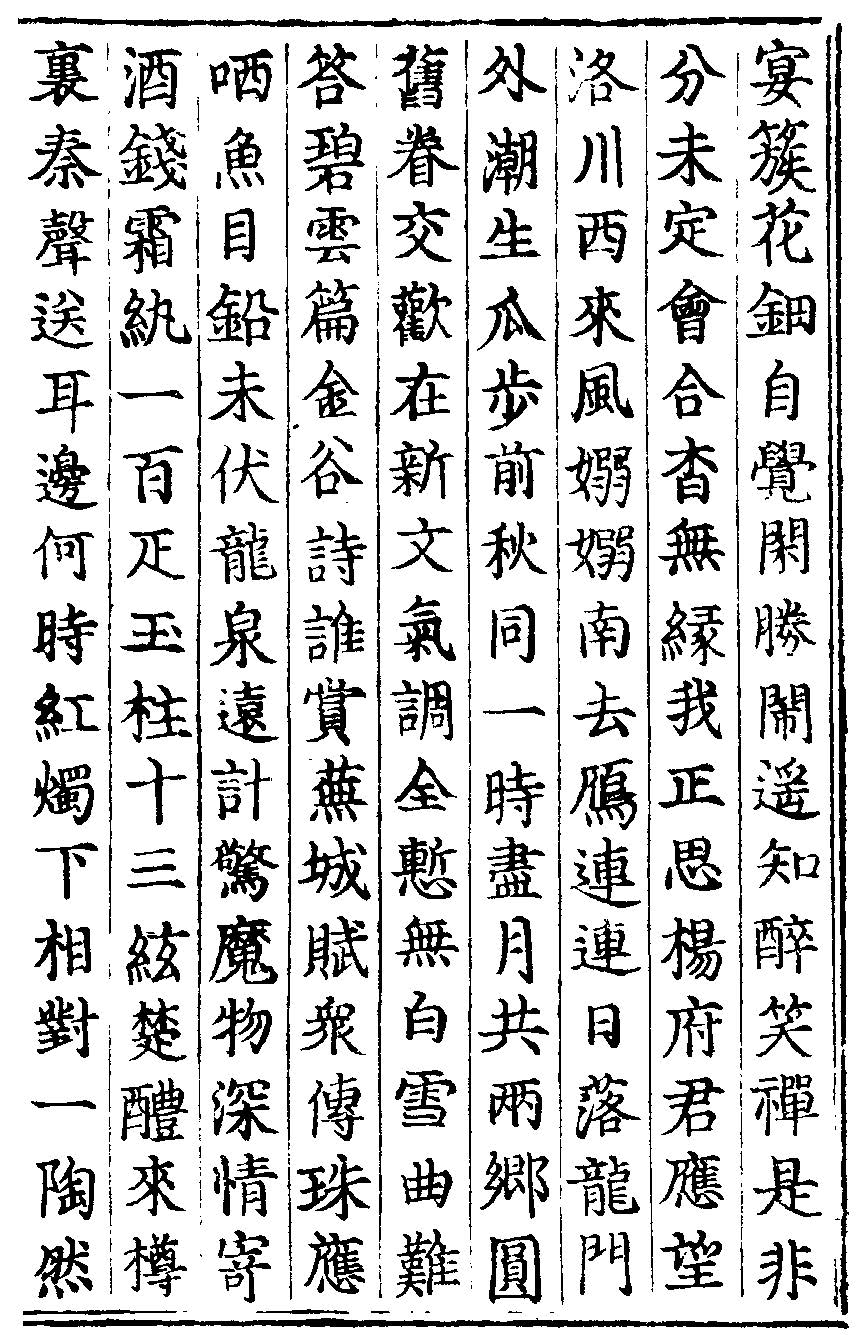 宴簇花鈿自覺閑勝鬧遥知醉笑禪是非
分未定會合杳無緣我正思楊府君應望
洛川西來風嫋嫋南去鴈連連日落龍門
外潮生瓜步前秋同一時盡月共兩鄉圓
舊眷交歡在新文氣調全慙無白雪曲難
答碧雲篇金谷詩誰賞蕪城賦衆傳珠應
哂魚目鉛未伏龍泉遠計驚魔物深情寄
酒錢霜紈一百疋玉柱十三絃楚醴來樽
裏秦聲送耳邊何時紅燭下相對一陶然